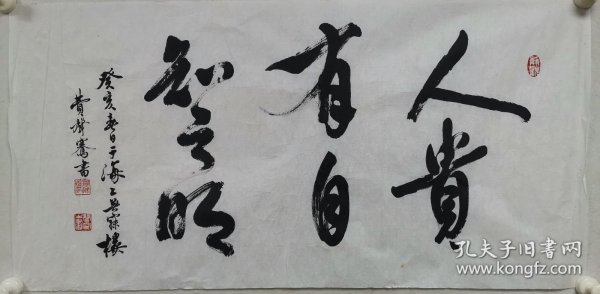 人貴
有自
知之明
癸亥春日于海上樓
費聲騫書
孔夫子旧书网
www.kongfz.com